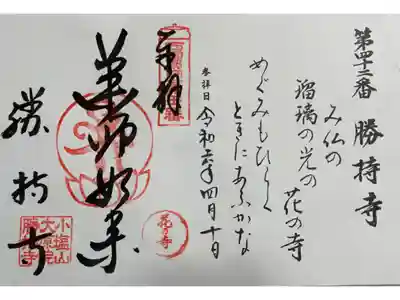 第四十二番 勝持寺
み仏の
瑠璃の光の花の寺
めぐみもひらく
ときにあふかな
参拝日 令和六年四月十日
奉拝
薬師如来
花の寺
勝持寺
小塩山
大原院
勝持寺